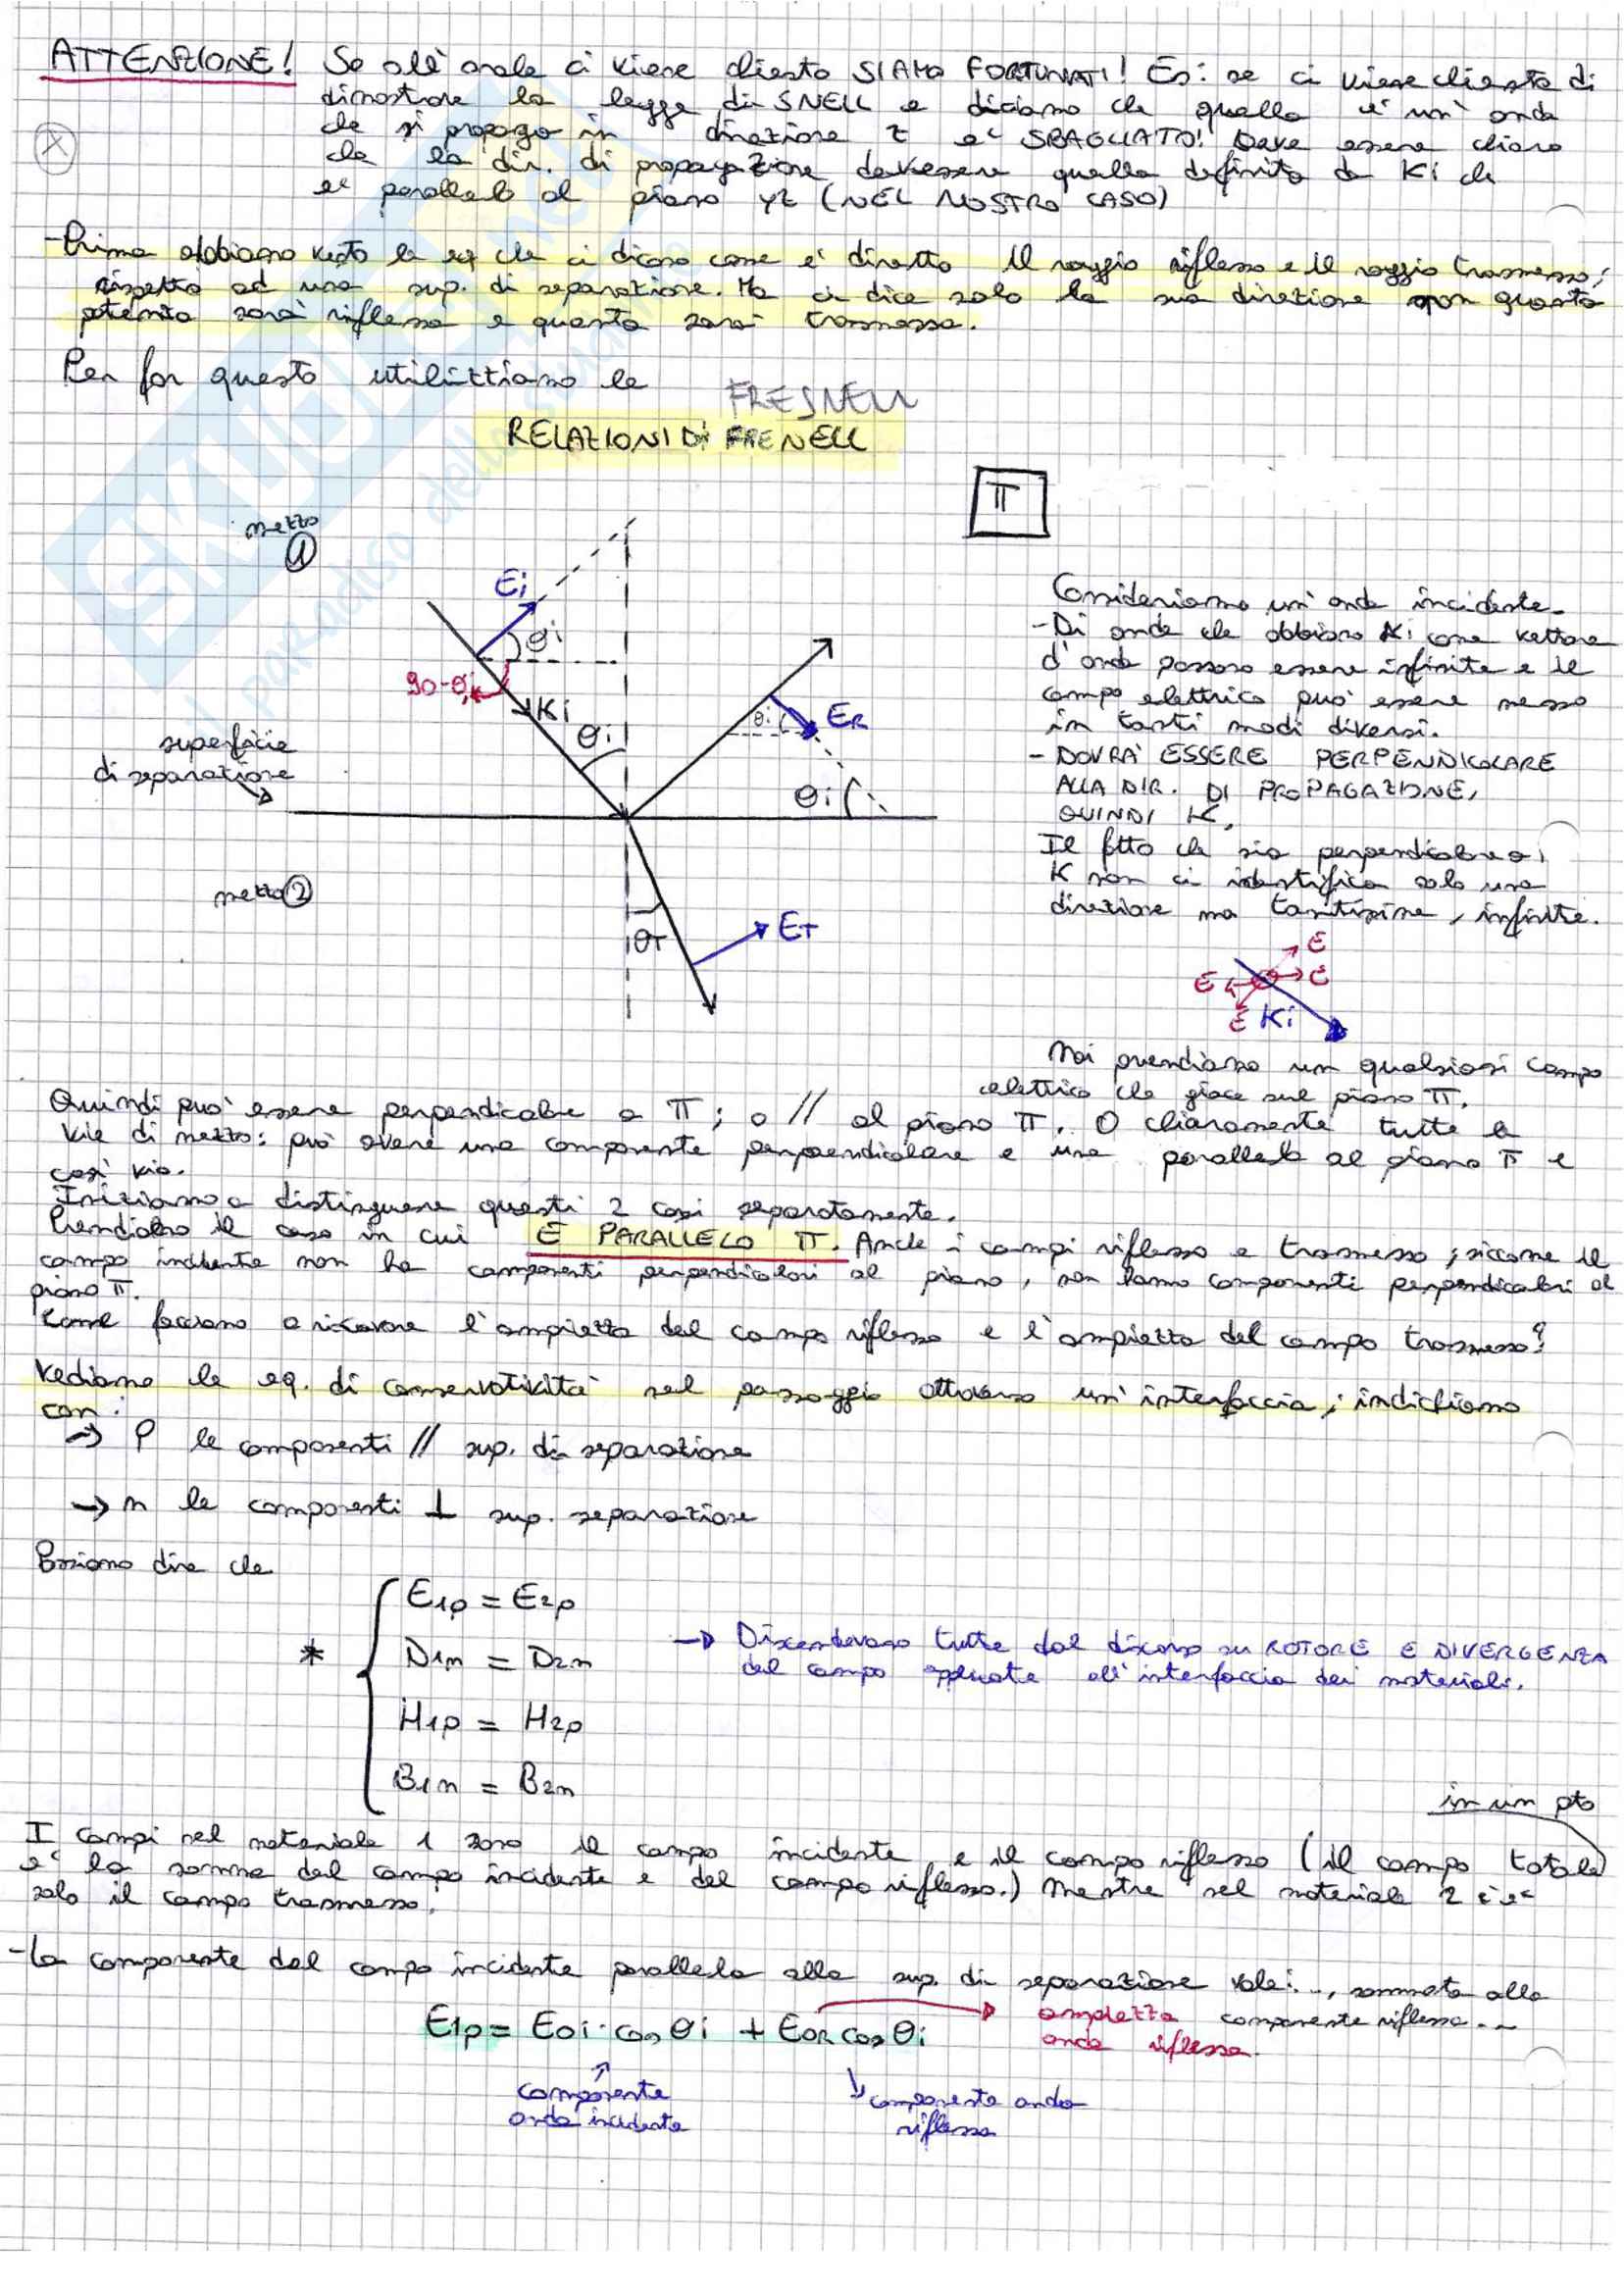 ATTENZIONE! Se all'orale ci viene chiesto SIAMO FORTUNATI! Es: se ci viene chiesto di
dimostrare la legge di SNELL e diciamo che quella è un'onda
che si propaga in direzione z e' SBAGLIATO! Deve essere chiaro
che la dir. di propagazione dev'essere quella definita da Ki che
e' parallelo al piano yz (NEL NOSTRO CASO)
X
- Prima abbiamo visto le eq che ci dicono come e' diretto il raggio riflesso e il raggio trasmesso;
rispetto ad una sup. di separazione. Ma ci dice solo la sua direzione non quanta
potenza sarà riflessa e quanta sarà trasmessa.
Per far questo utilizziamo le
FRESNELL
RELAZIONI DI FRENELL
π
mezzo
1
Ei
θi
90-θi
Ki
θi
θi
ER
θi
superficie
di separazione
mezzo 2
θT
ET
Consideriamo un'onda incidente.
- Di onde che abbiano Ki come vettore
d'onda possono essere infinite e il
campo elettrico può essere messo
in tanti modi diversi.
- DOVRA' ESSERE PERPENDICOLARE
ALLA DIR. DI PROPAGAZIONE,
QUINDI K.
Il fatto che sia perpendicolare a
K non ci identifica solo una
direzione ma tantissime, infinite.
E
E E
E Ki
Noi prendiamo un qualsiasi campo
elettrico che giace sul piano π.
Quindi può essere perpendicolare a π; o // al piano π. O chiaramente tutte le
vie di mezzo: può avere una componente perpendicolare e una parallela al piano π e
così via.
Iniziamo a distinguere questi 2 casi separatamente.
Prendiamo il caso in cui E PARALLELO π. Anche i campi riflesso e trasmesso, siccome il
campo incidente non ha componenti perpendicolari al piano, non hanno componenti perpendicolari al
piano π.
Come facciamo a ricavare l'ampiezza del campo riflesso e l'ampiezza del campo trasmesso?
Vediamo le eq. di conservatività nel passaggio attraverso un'interfaccia; indichiamo
con:
→ P le componenti // sup. di separazione
→ n le componenti ⊥ sup. separazione
Possiamo dire che
E1p = E2p
* D1n = D2n → Discendevano tutte dal discorso su ROTORE E DIVERGENZA
del campo applicate all'interfaccia dei materiali.
H1p = H2p
B1n = B2n
in un pto
I campi nel materiale 1 sono il campo incidente e il campo riflesso (il campo totale
e' la somma del campo incidente e del campo riflesso.) Mentre nel materiale 2 c'e'
solo il campo trasmesso.
- La componente del campo incidente parallela alla sup. di separazione vale: .., sommata alla
componente riflessa...
E1p = E0i · cos θi + E0R cos θi
ampiezza
onda riflessa.
componente
onda incidente
componente onda
riflessa